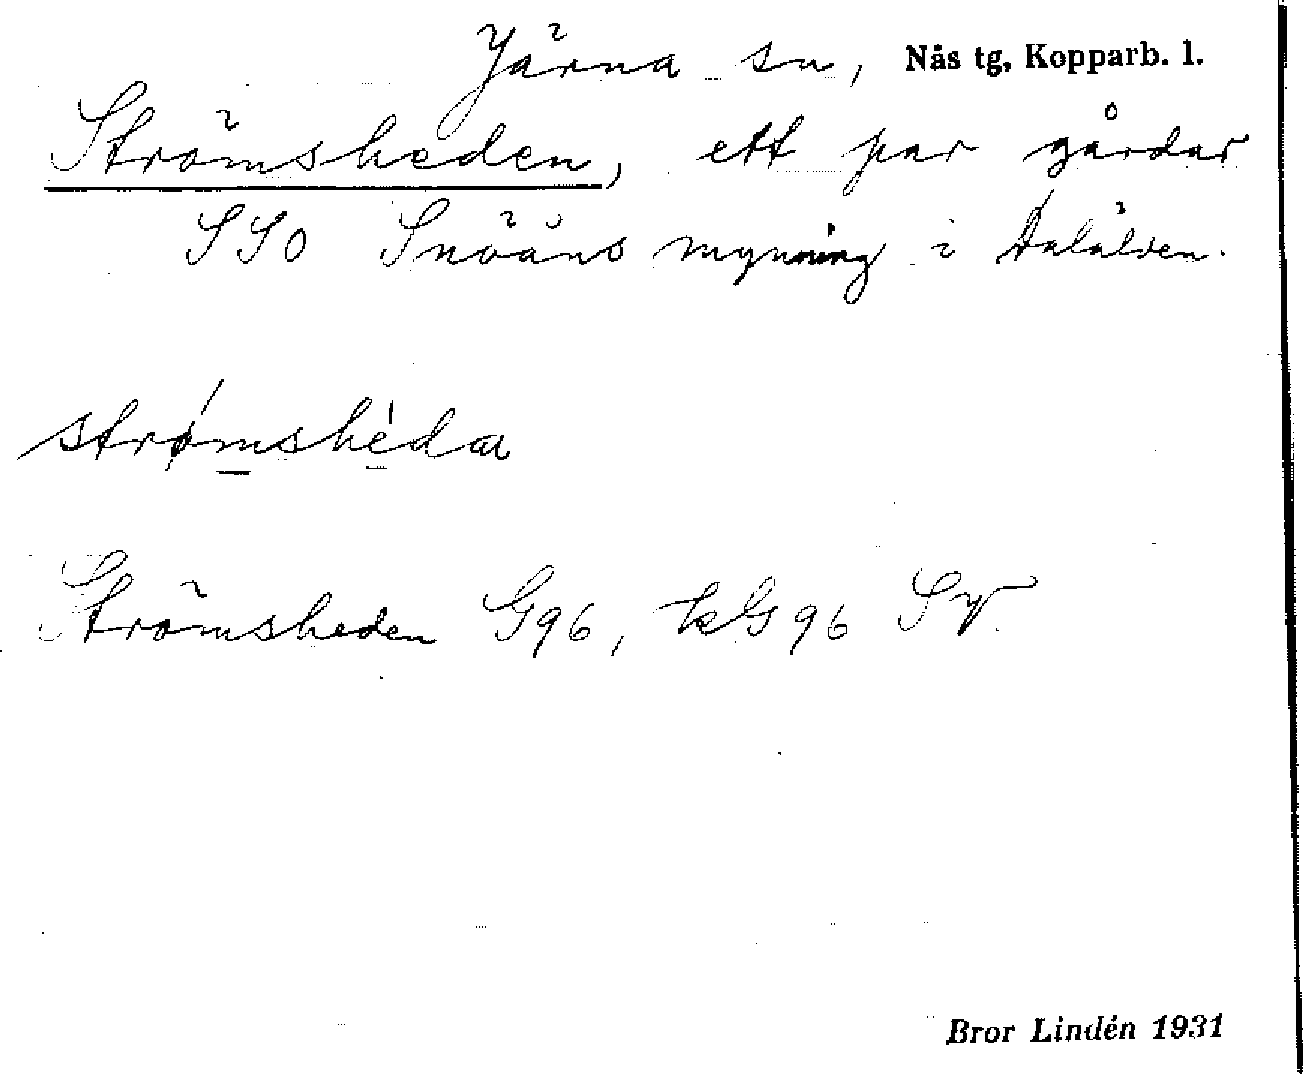 Järna sn, Nås tg, Kopparb. l.
Strömsheden, ett par gårdar
SSO Snöåns mynning i Dalälven.
strømshedα
Strömsheden G96, kG96 Sv.
Bror Lindén 1931